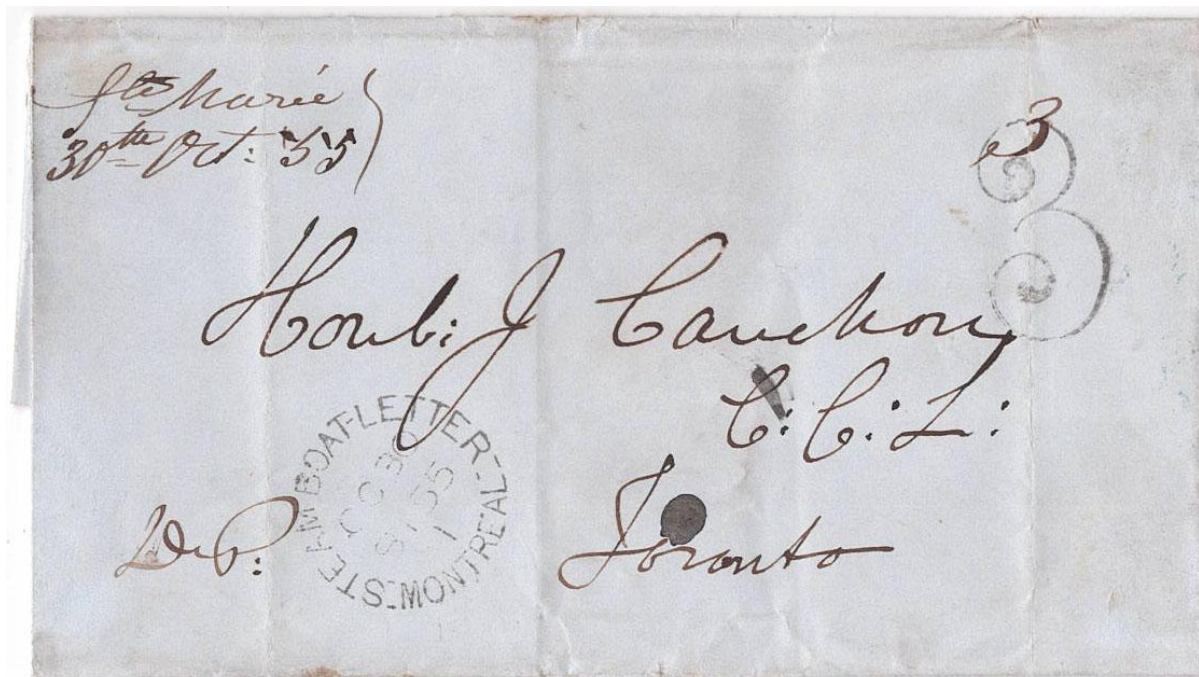 Ste Marie
30th Oct: 55
3
3
Honbl: J Cauchon
C: C: L:
STEAMBOAT-LETTER-MONTREAL
OC 30
1855
Toronto